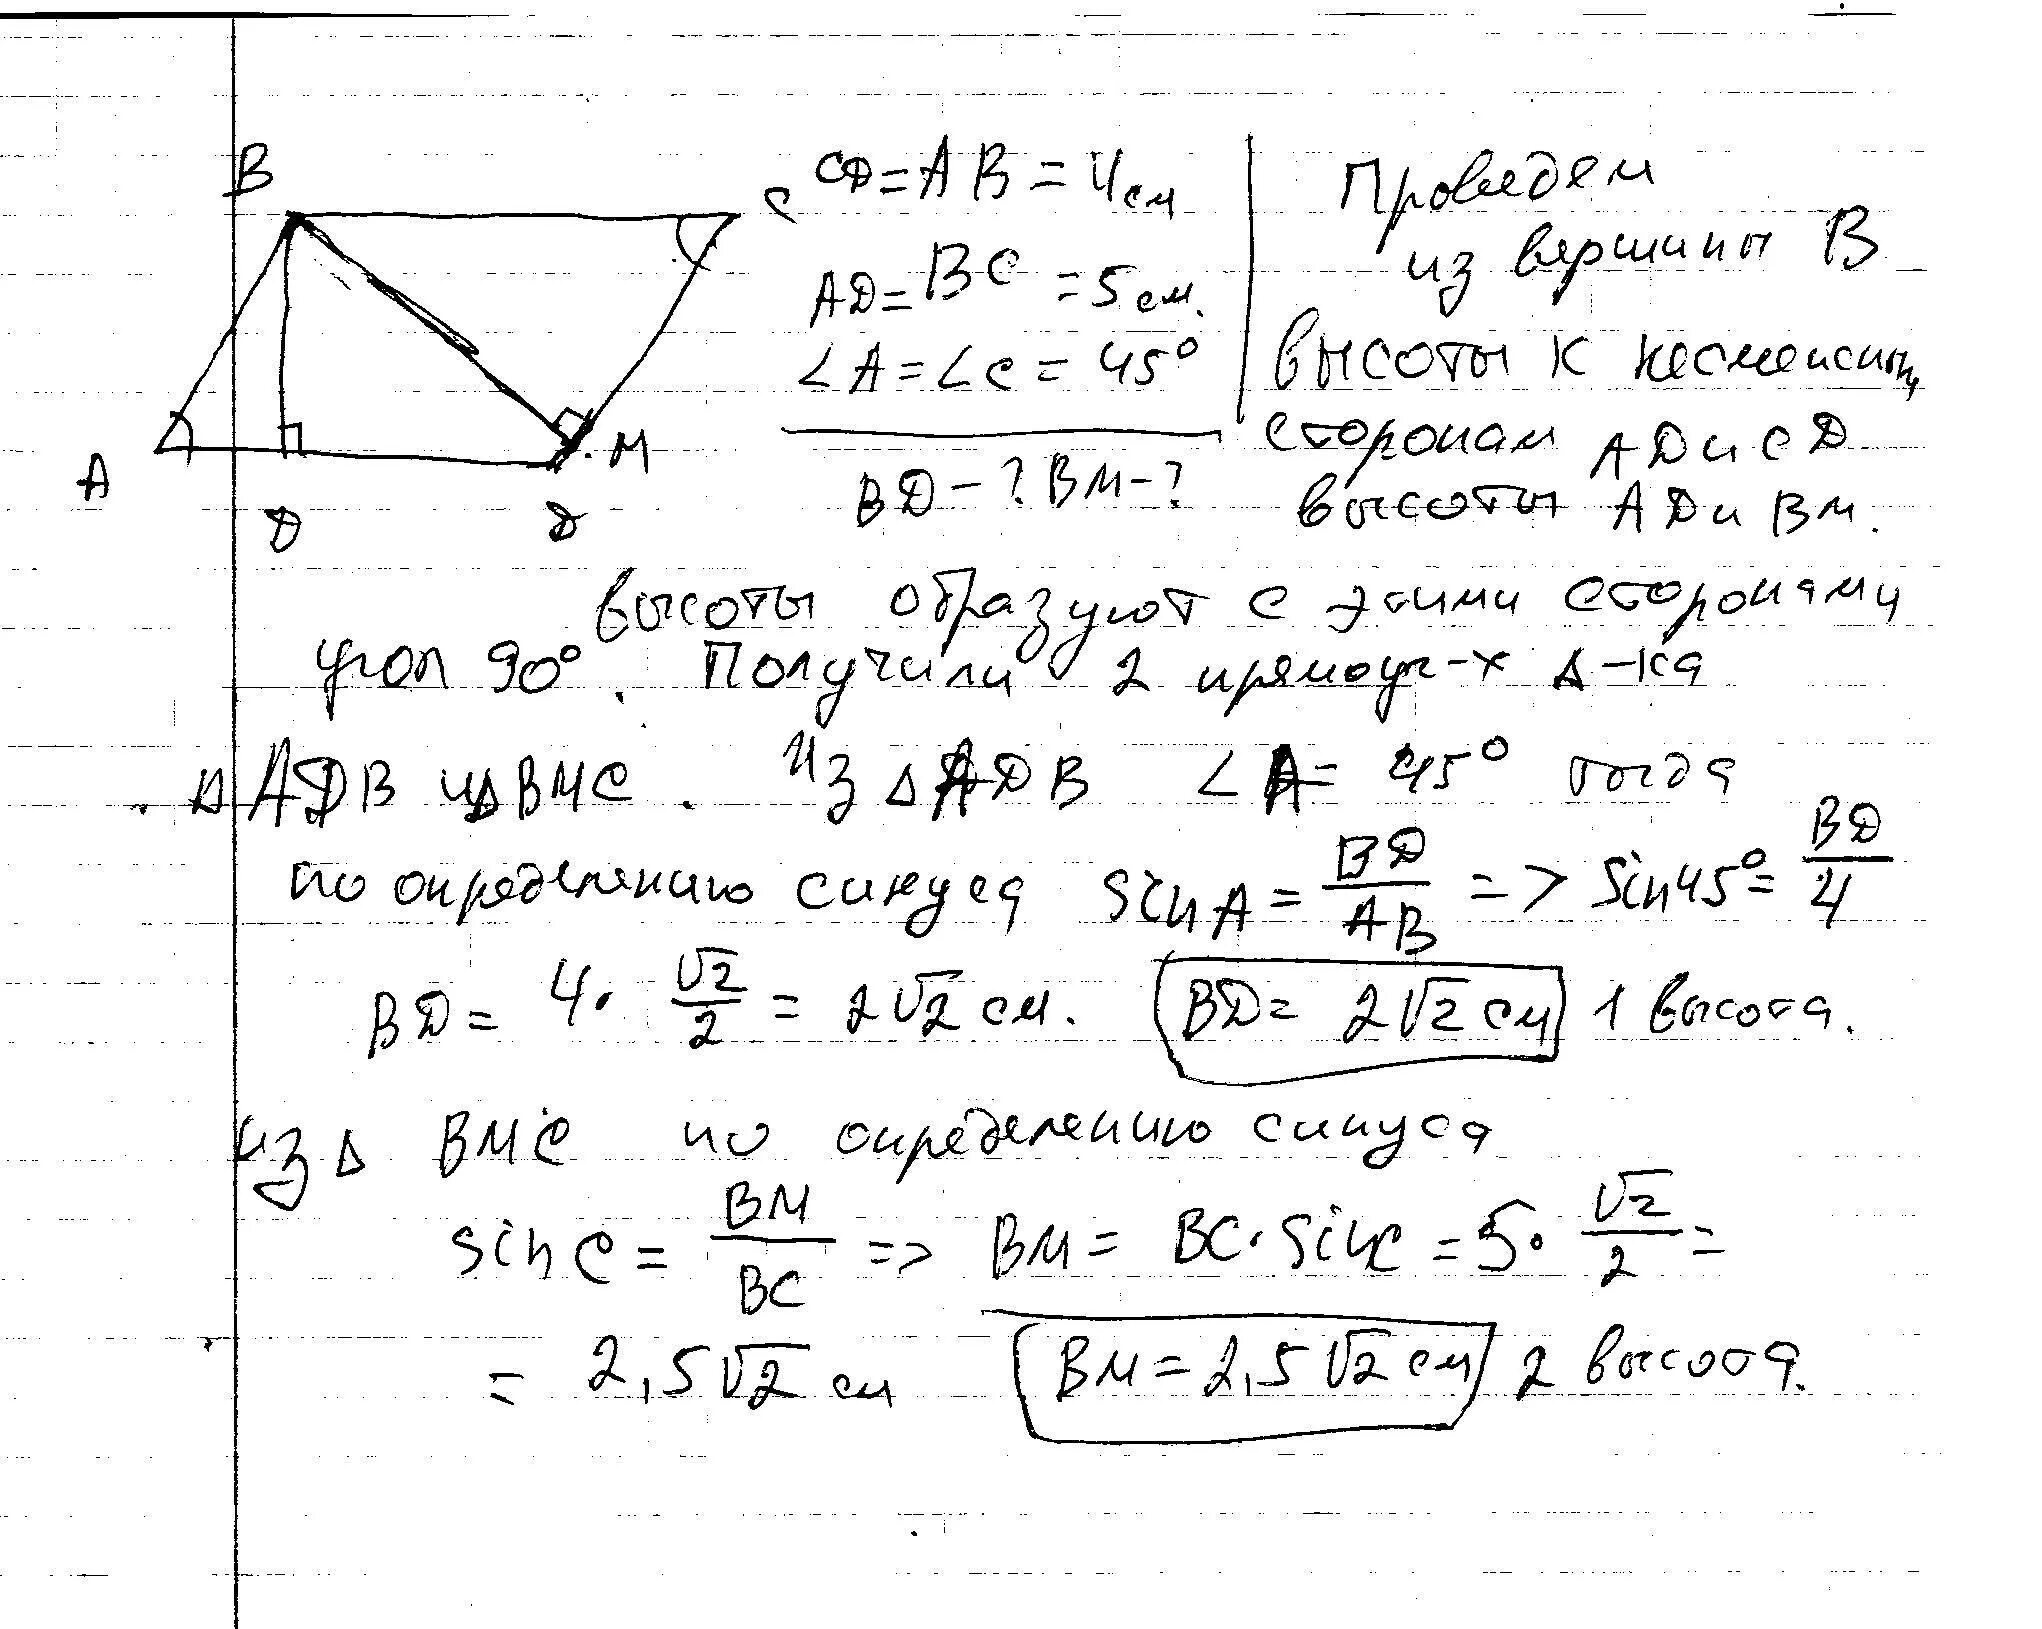 B
C
A
D
D
M
CD = AB = 4 см
AD = BC = 5 см.
∠A = ∠C = 45°
BD - ? BM - ?
Проведем
из вершины B
высоты к несмежным
сторонам AD и CD
высоты AD и BM.
высоты образуют с этими сторонами
угол 90°. Получили 2 прямоуг-х Δ-ка
Δ ADB и Δ BMC. Из Δ ADB ∠A = 45° тогда
по определению синуса sin A = BD/AB => sin 45° = BD/4
BD = 4 · √2/2 = 2√2 см. BD = 2√2 см 1 высота.
из Δ BMC по определению синуса
sin C = BM/BC => BM = BC · sin C = 5 · √2/2 =
= 2,5√2 см BM = 2,5√2 см 2 высота.